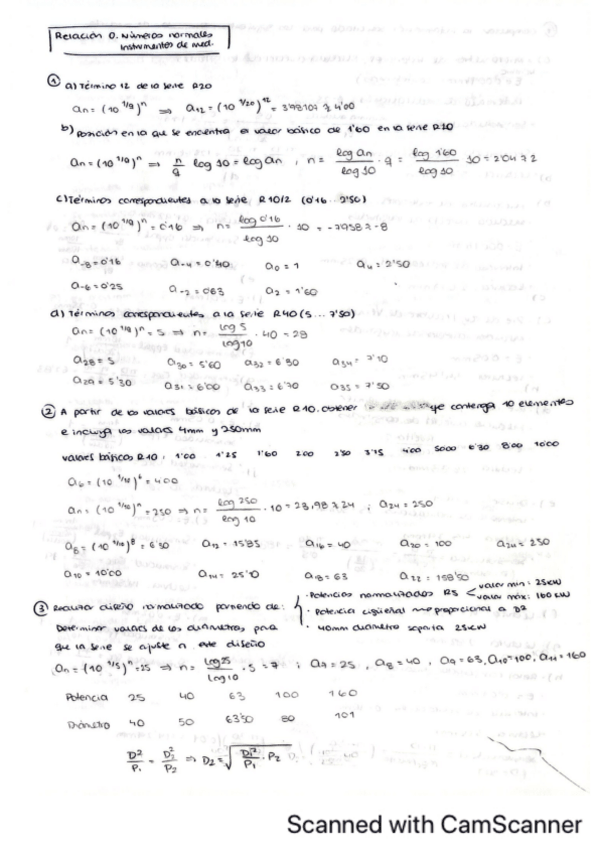 Relación 0. Números normales
Instrumentos de med.
① a) Término 12 de la serie R20
an = (10^1/q)^n ⇒ a12 = (10^1/20)^12 = 3'98107 ≈ 4'00
b) Posición en la que se encuentra el valor básico de 1'60 en la serie R10
an = (10^1/q)^n ⇒ n/q log 10 = log an , n = log an / log 10 · q = log 1'60 / log 10 10 = 2'04 ≈ 2
c) Términos correspondientes a la serie R10/2 (0'16 .. 2'50)
an = (10^1/q)^n = 0'16 ⇒ n = log 0'16 / log 10 · 10 = -7'958 ≈ -8
a-8 = 0'16 a-4 = 0'40 a0 = 1 a4 = 2'50
a-6 = 0'25 a-2 = 0'63 a2 = 1'60
d) Términos correspondientes a la serie R40 (5 ... 7'50)
an = (10^1/q)^n = 5 ⇒ n = log 5 / log 10 · 40 = 28
a28 = 5 a30 = 5'60 a32 = 6'30 a34 = 7'10
a29 = 5'30 a31 = 6'00 a33 = 6'70 a35 = 7'50
② A partir de los valores básicos de la serie R10. obtener que contenga 10 elementos
e incluya los valores 4mm y 250mm
valores básicos R10 : 1'00 1'25 1'60 200 250 3'15 4'00 5000 6'30 8'00 10'00
a6 = (10^1/10)^6 = 4'00
an = (10^1/10)^n = 250 ⇒ n = log 250 / log 10 · 10 = 23,98 ≈ 24 ; a24 = 250
a8 = (10^1/10)^8 = 6'30 a12 = 15'85 a16 = 40 a20 = 100 a24 = 250
a10 = 10'00 a14 = 25'10 a18 = 63 a22 = 158'50
③ Realizar diseño normalizado partiendo de: · Potencias normalizadas R5 < valor min: 25kW
valor máx: 160 kW
· Potencia cigüeñal proporcional a D2
Determinar valores de los diámetros, para · 40mm diámetro soporta 25kW
que la serie se ajuste a este diseño
an = (10^1/5)^n = 25 ⇒ n = log 25 / log 10 · 5 = 7 ; a7 = 25 , a8 = 40 , a9 = 63, a10 = 100, a11 = 160
Potencia 25 40 63 100 160
Diámetro 40 50 63'50 80 101
D²/P1 = D2²/P2 ⇒ D2 = √(D1²/P1 · P2)
Scanned with CamScanner